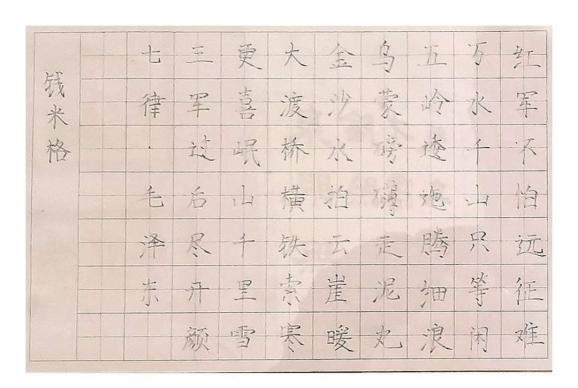 红军不怕远征难
万水千山只等闲
五岭逶迤腾细浪
乌蒙磅礴走泥丸
金沙水拍云崖暖
大渡桥横铁索寒
更喜岷山千里雪
三军过后尽开颜
七律·毛泽东
钱米格